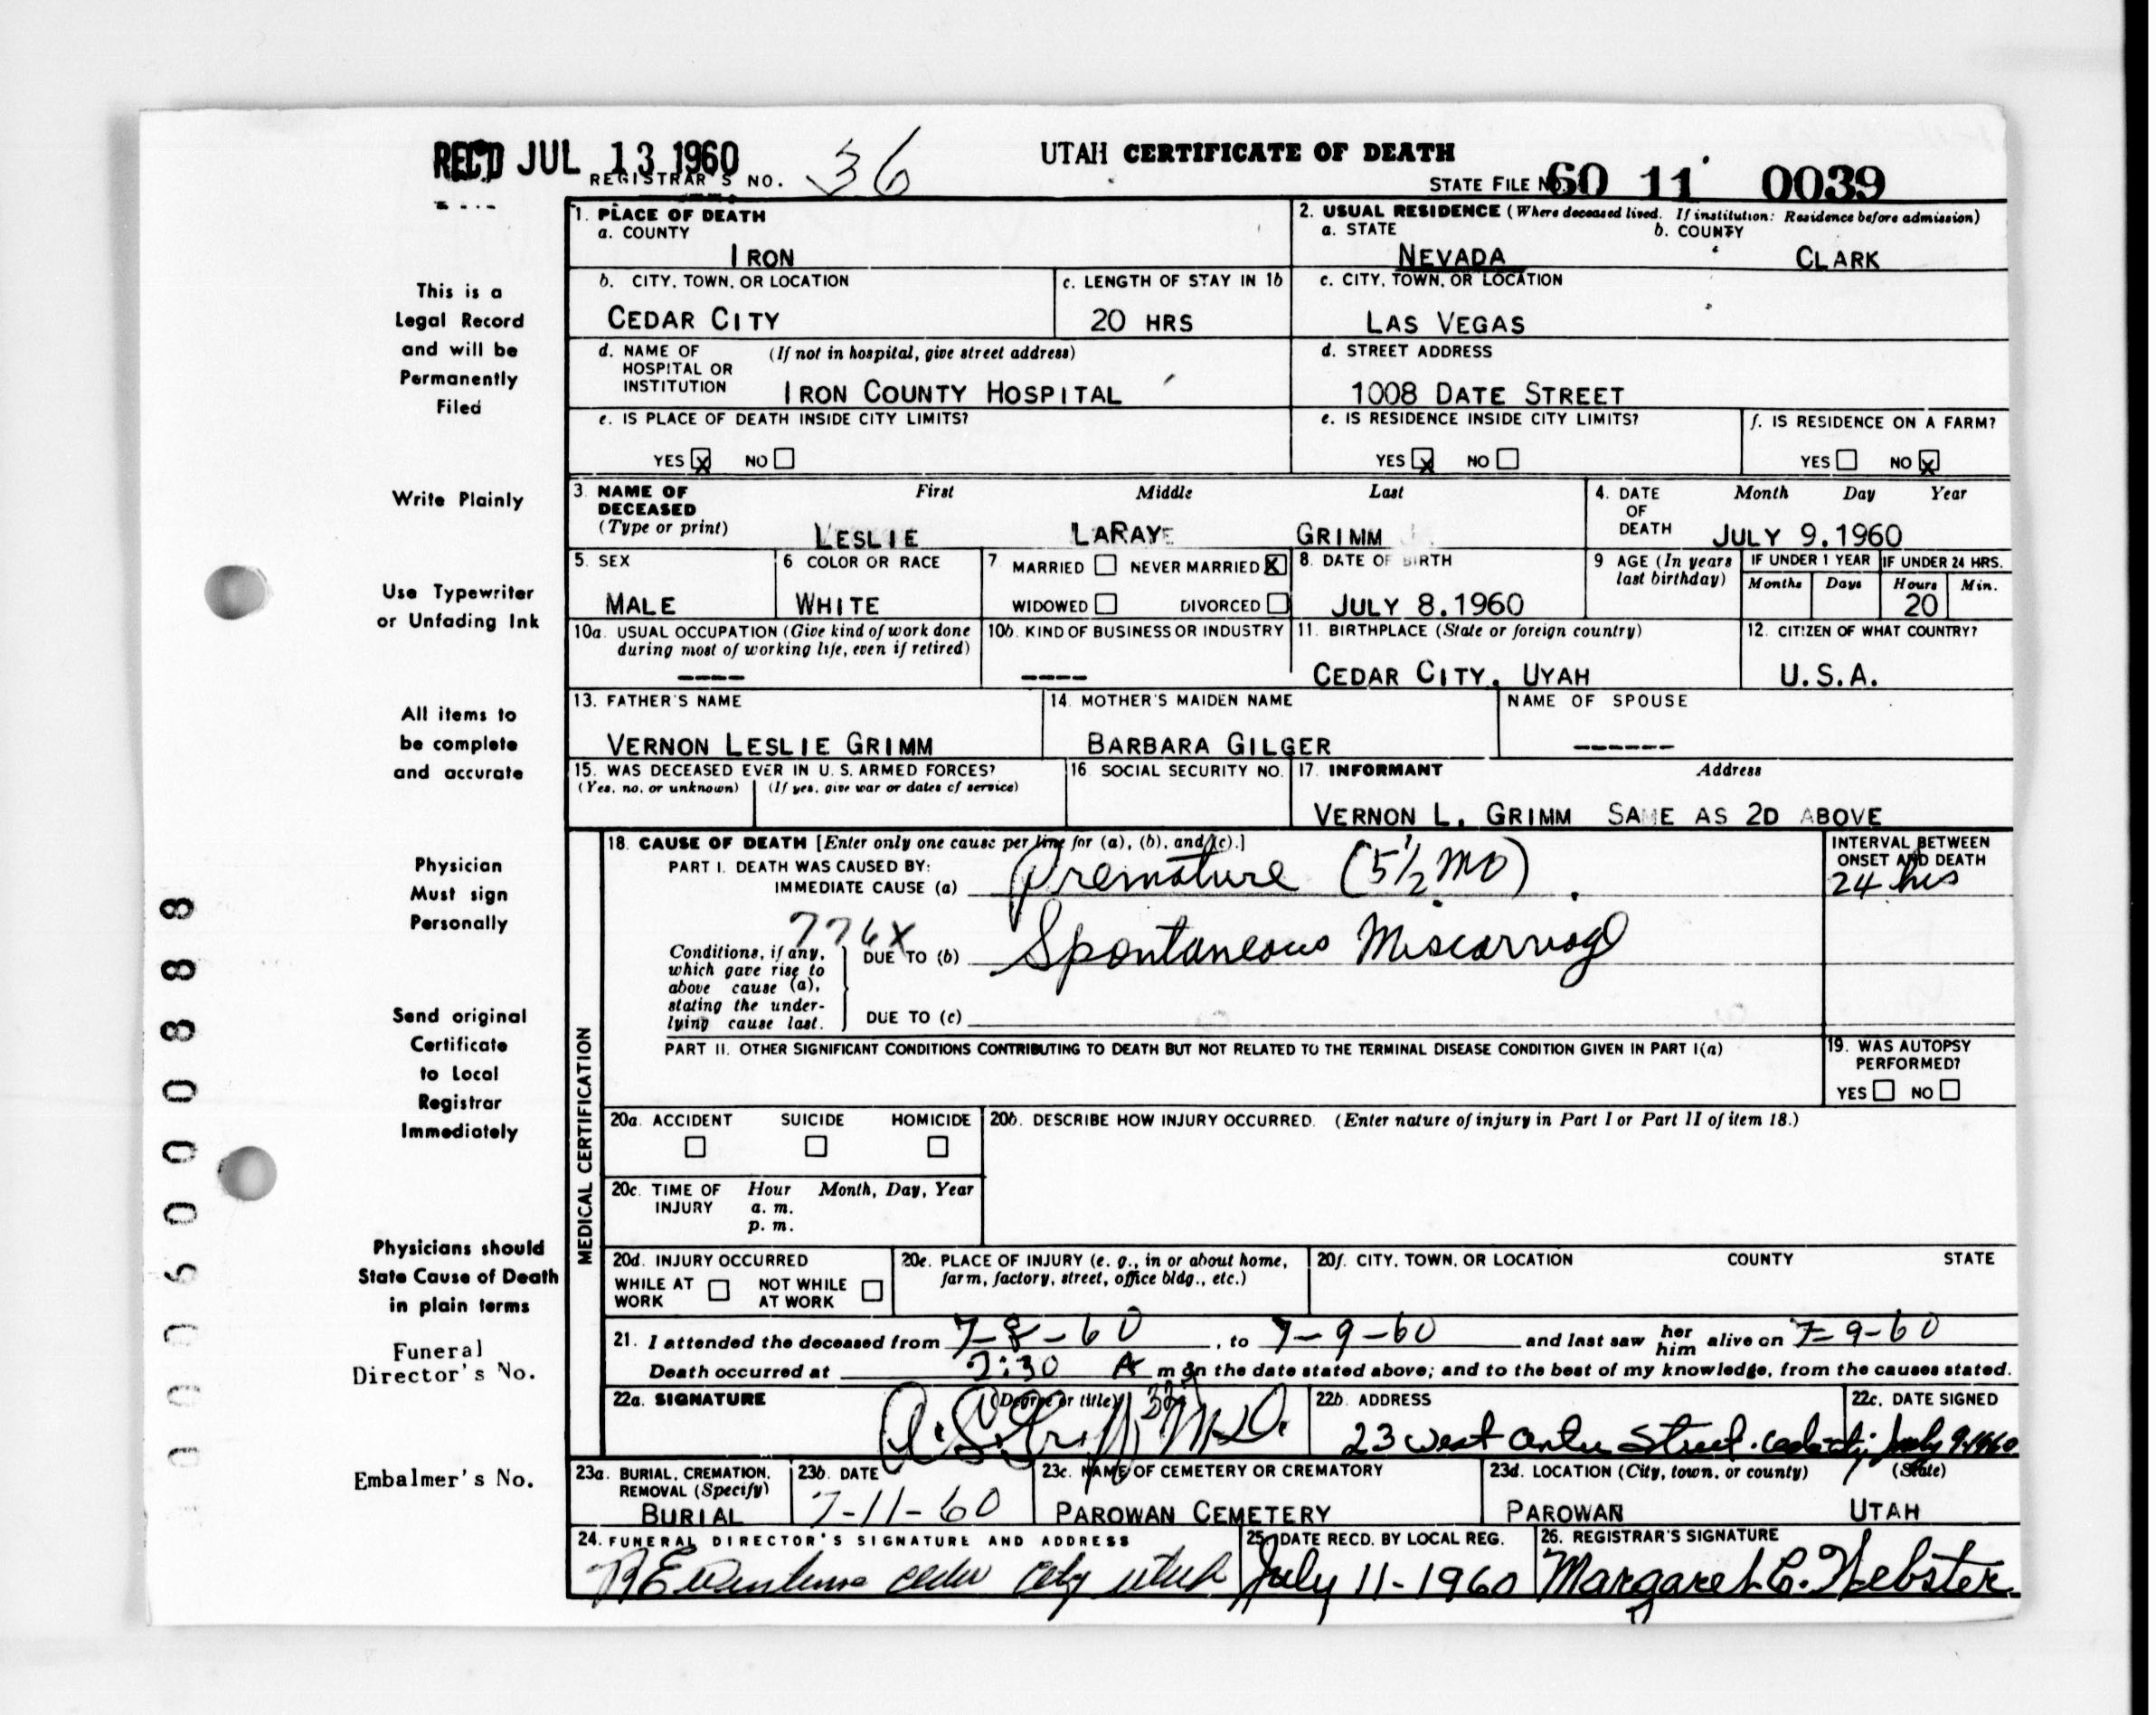 REC'D JUL 13 1960
REGISTRAR'S NO. 36
UTAH CERTIFICATE OF DEATH
STATE FILE NO. 60 11 0039
This is a
Legal Record
and will be
Permanently
Filed
Write Plainly
Use Typewriter
or Unfading Ink
All items to
be complete
and accurate
Physician
Must sign
Personally
Send original
Certificate
to Local
Registrar
Immediately
Physicians should
State Cause of Death
in plain terms
Funeral
Director's No.
Embalmer's No.
1. PLACE OF DEATH
a. COUNTY
IRON
2. USUAL RESIDENCE (Where deceased lived. If institution: Residence before admission)
a. STATE b. COUNTY
NEVADA CLARK
b. CITY, TOWN, OR LOCATION
CEDAR CITY
c. LENGTH OF STAY IN 1b
20 HRS
c. CITY, TOWN, OR LOCATION
LAS VEGAS
d. NAME OF (If not in hospital, give street address)
HOSPITAL OR
INSTITUTION IRON COUNTY HOSPITAL
d. STREET ADDRESS
1008 DATE STREET
e. IS PLACE OF DEATH INSIDE CITY LIMITS?
YES X NO
e. IS RESIDENCE INSIDE CITY LIMITS?
YES X NO
f. IS RESIDENCE ON A FARM?
YES NO X
3. NAME OF First Middle Last
DECEASED
(Type or print) LESLIE LARAYE GRIMM
4. DATE Month Day Year
OF
DEATH JULY 9.1960
5. SEX
MALE
6 COLOR OR RACE
WHITE
7 MARRIED NEVER MARRIED X
WIDOWED DIVORCED
8. DATE OF BIRTH
JULY 8.1960
9 AGE (In years
last birthday)
IF UNDER 1 YEAR
Months Days
IF UNDER 24 HRS.
Hours Min.
20
10a. USUAL OCCUPATION (Give kind of work done
during most of working life, even if retired)
----
10b. KIND OF BUSINESS OR INDUSTRY
----
11. BIRTHPLACE (State or foreign country)
CEDAR CITY, UYAH
12. CITIZEN OF WHAT COUNTRY?
U.S.A.
13. FATHER'S NAME
VERNON LESLIE GRIMM
14. MOTHER'S MAIDEN NAME
BARBARA GILGER
NAME OF SPOUSE
------
15. WAS DECEASED EVER IN U. S. ARMED FORCES?
(Yes, no, or unknown) (If yes, give war or dates of service)
16 SOCIAL SECURITY NO.
17. INFORMANT Address
VERNON L. GRIMM SAME AS 2D ABOVE
MEDICAL CERTIFICATION
18. CAUSE OF DEATH [Enter only one cause per line for (a), (b), and (c).]
PART I. DEATH WAS CAUSED BY:
IMMEDIATE CAUSE (a) Premature (5 1/2 MO)
INTERVAL BETWEEN
ONSET AND DEATH
24 hrs
776X
Conditions, if any,
which gave rise to
above cause (a),
stating the under-
lying cause last.
DUE TO (b) Spontaneous Miscarriage
DUE TO (c)
PART II. OTHER SIGNIFICANT CONDITIONS CONTRIBUTING TO DEATH BUT NOT RELATED TO THE TERMINAL DISEASE CONDITION GIVEN IN PART I(a)
19. WAS AUTOPSY
PERFORMED?
YES NO
20a. ACCIDENT SUICIDE HOMICIDE
20b. DESCRIBE HOW INJURY OCCURRED. (Enter nature of injury in Part I or Part II of item 18.)
20c. TIME OF Hour Month, Day, Year
INJURY a. m.
p. m.
20d. INJURY OCCURRED
WHILE AT NOT WHILE
WORK AT WORK
20e. PLACE OF INJURY (e. g., in or about home,
farm, factory, street, office bldg., etc.)
20f. CITY, TOWN, OR LOCATION COUNTY STATE
21. I attended the deceased from 7-8-60, to 7-9-60 and last saw her him alive on 7-9-60
Death occurred at 2:30 A m on the date stated above; and to the best of my knowledge, from the causes stated.
22a. SIGNATURE (Degree or title) M.D.
22b. ADDRESS
23 West Center Street. Cedar City
22c. DATE SIGNED
July 9, 1960
23a. BURIAL, CREMATION,
REMOVAL (Specify)
BURIAL
23b. DATE
7-11-60
23c. NAME OF CEMETERY OR CREMATORY
PAROWAN CEMETERY
23d. LOCATION (City, town, or county) (State)
PAROWAN UTAH
24. FUNERAL DIRECTOR'S SIGNATURE AND ADDRESS
Cedar City Utah
25. DATE RECD. BY LOCAL REG.
July 11-1960
26. REGISTRAR'S SIGNATURE
Margaret C. Webster